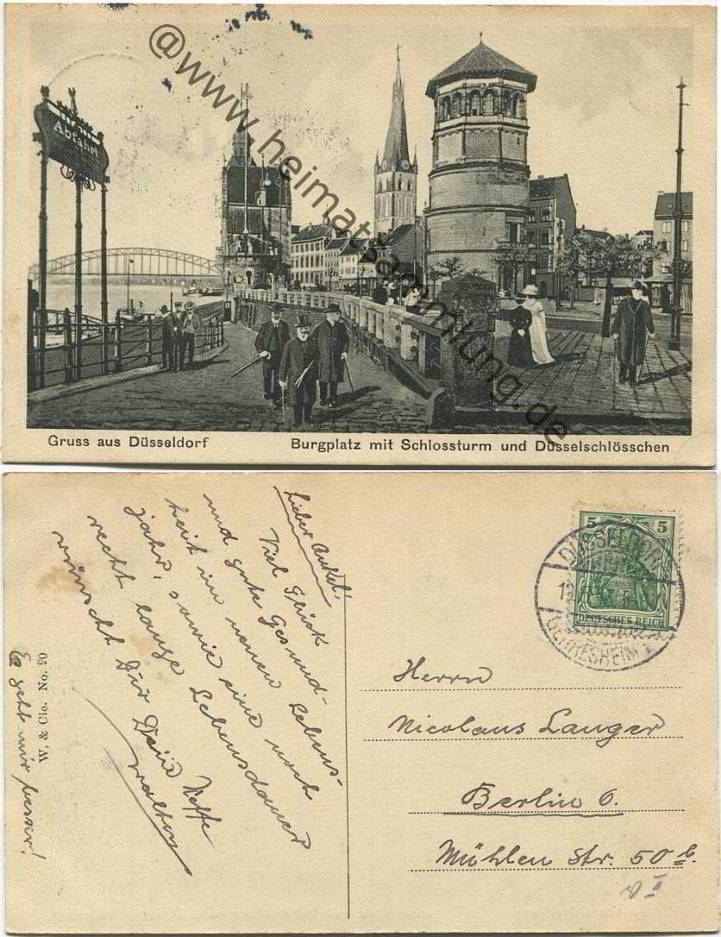 Abfahrt
@www.heimatsammlung.de
Gruss aus Düsseldorf
Burgplatz mit Schlossturm und Düsselschlösschen
Lieber Onkel!
Viel Glück
und gute Gesund-
heit im neuen Lebens-
jahr, sowie eine noch
recht lange Lebensdauer
wünscht Dir Dein Neffe
Walter
Es geht mir besser!
W. & Cie. No. 20
5 5
DEUTSCHES REICH
DÜSSELDORF
GERRESHEIM
Herrn
Nicolaus Langer
Berlin O.
Mühlen Str. 50 b.